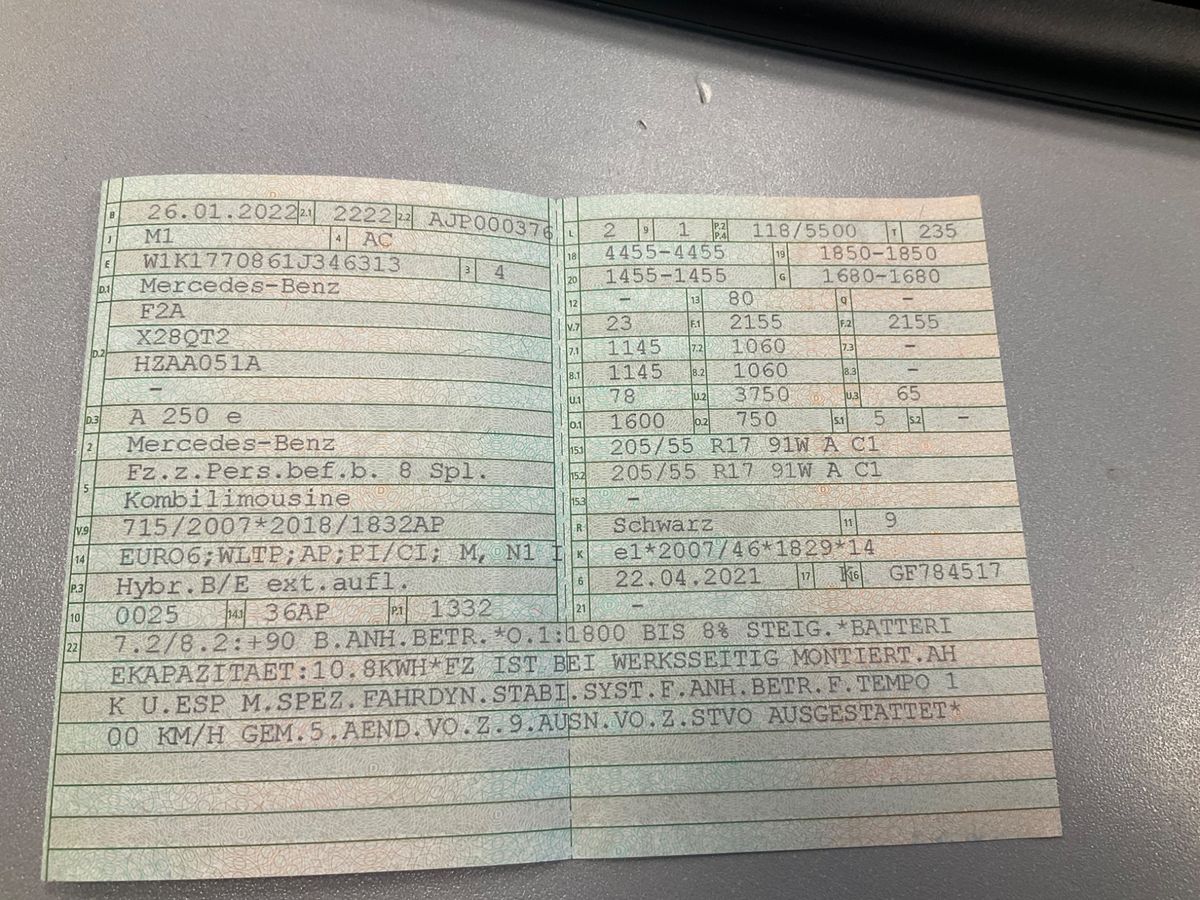 B 26.01.2022 2.1 2222 2.2 AJP000376
J M1 4 AC
E W1K1770861J346313 3 4
D.1 Mercedes-Benz
F2A
D.2 X28QT2
HZAA051A
-
D.3 A 250 e
2 Mercedes-Benz
5 Fz.z.Pers.bef.b. 8 Spl.
Kombilimousine
V.9 715/2007*2018/1832AP
14 EURO6;WLTP;AP;PI/CI; M, N1 I
P.3 Hybr.B/E ext.aufl.
10 0025 14.1 36AP P.1 1332
L 2 9 1 P.2 P.4 118/5500 T 235
18 4455-4455 19 1850-1850
20 1455-1455 G 1680-1680
12 - 13 80 Q -
V.7 23 F.1 2155 F.2 2155
7.1 1145 7.2 1060 7.3 -
8.1 1145 8.2 1060 8.3 -
U.1 78 U.2 3750 U.3 65
O.1 1600 O.2 750 S.1 5 S.2 -
15.1 205/55 R17 91W A C1
15.2 205/55 R17 91W A C1
15.3 -
R Schwarz 11 9
K e1*2007/46*1829*14
6 22.04.2021 17 K 16 GF784517
21 -
22 7.2/8.2:+90 B.ANH.BETR.*O.1:1800 BIS 8% STEIG.*BATTERI
EKAPAZITAET:10.8KWH*FZ IST BEI WERKSSEITIG MONTIERT.AH
K U.ESP M.SPEZ.FAHRDYN.STABI.SYST.F.ANH.BETR.F.TEMPO 1
00 KM/H GEM.5.AEND.VO.Z.9.AUSN.VO.Z.STVO AUSGESTATTET*